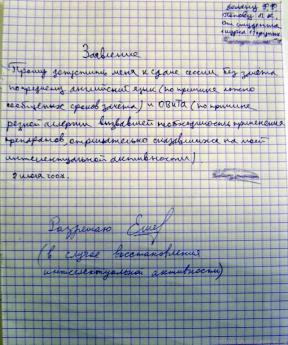 Декану Ф.Ф.
Попову П.К.
От студента
Заявление
Прошу допустить меня к сдаче сессии без зачета
по предмету английский язык (по причине ложно
сообщенных сроков зачета) и ОВиТА (по причине
резкой аллергии вызвавшей необходимость применения
препаратов, отрицательно сказавшихся на моей
интелектуальной активности)
2 июля 200
Разрешаю
(в случае восстановления
интелектуальной активности)